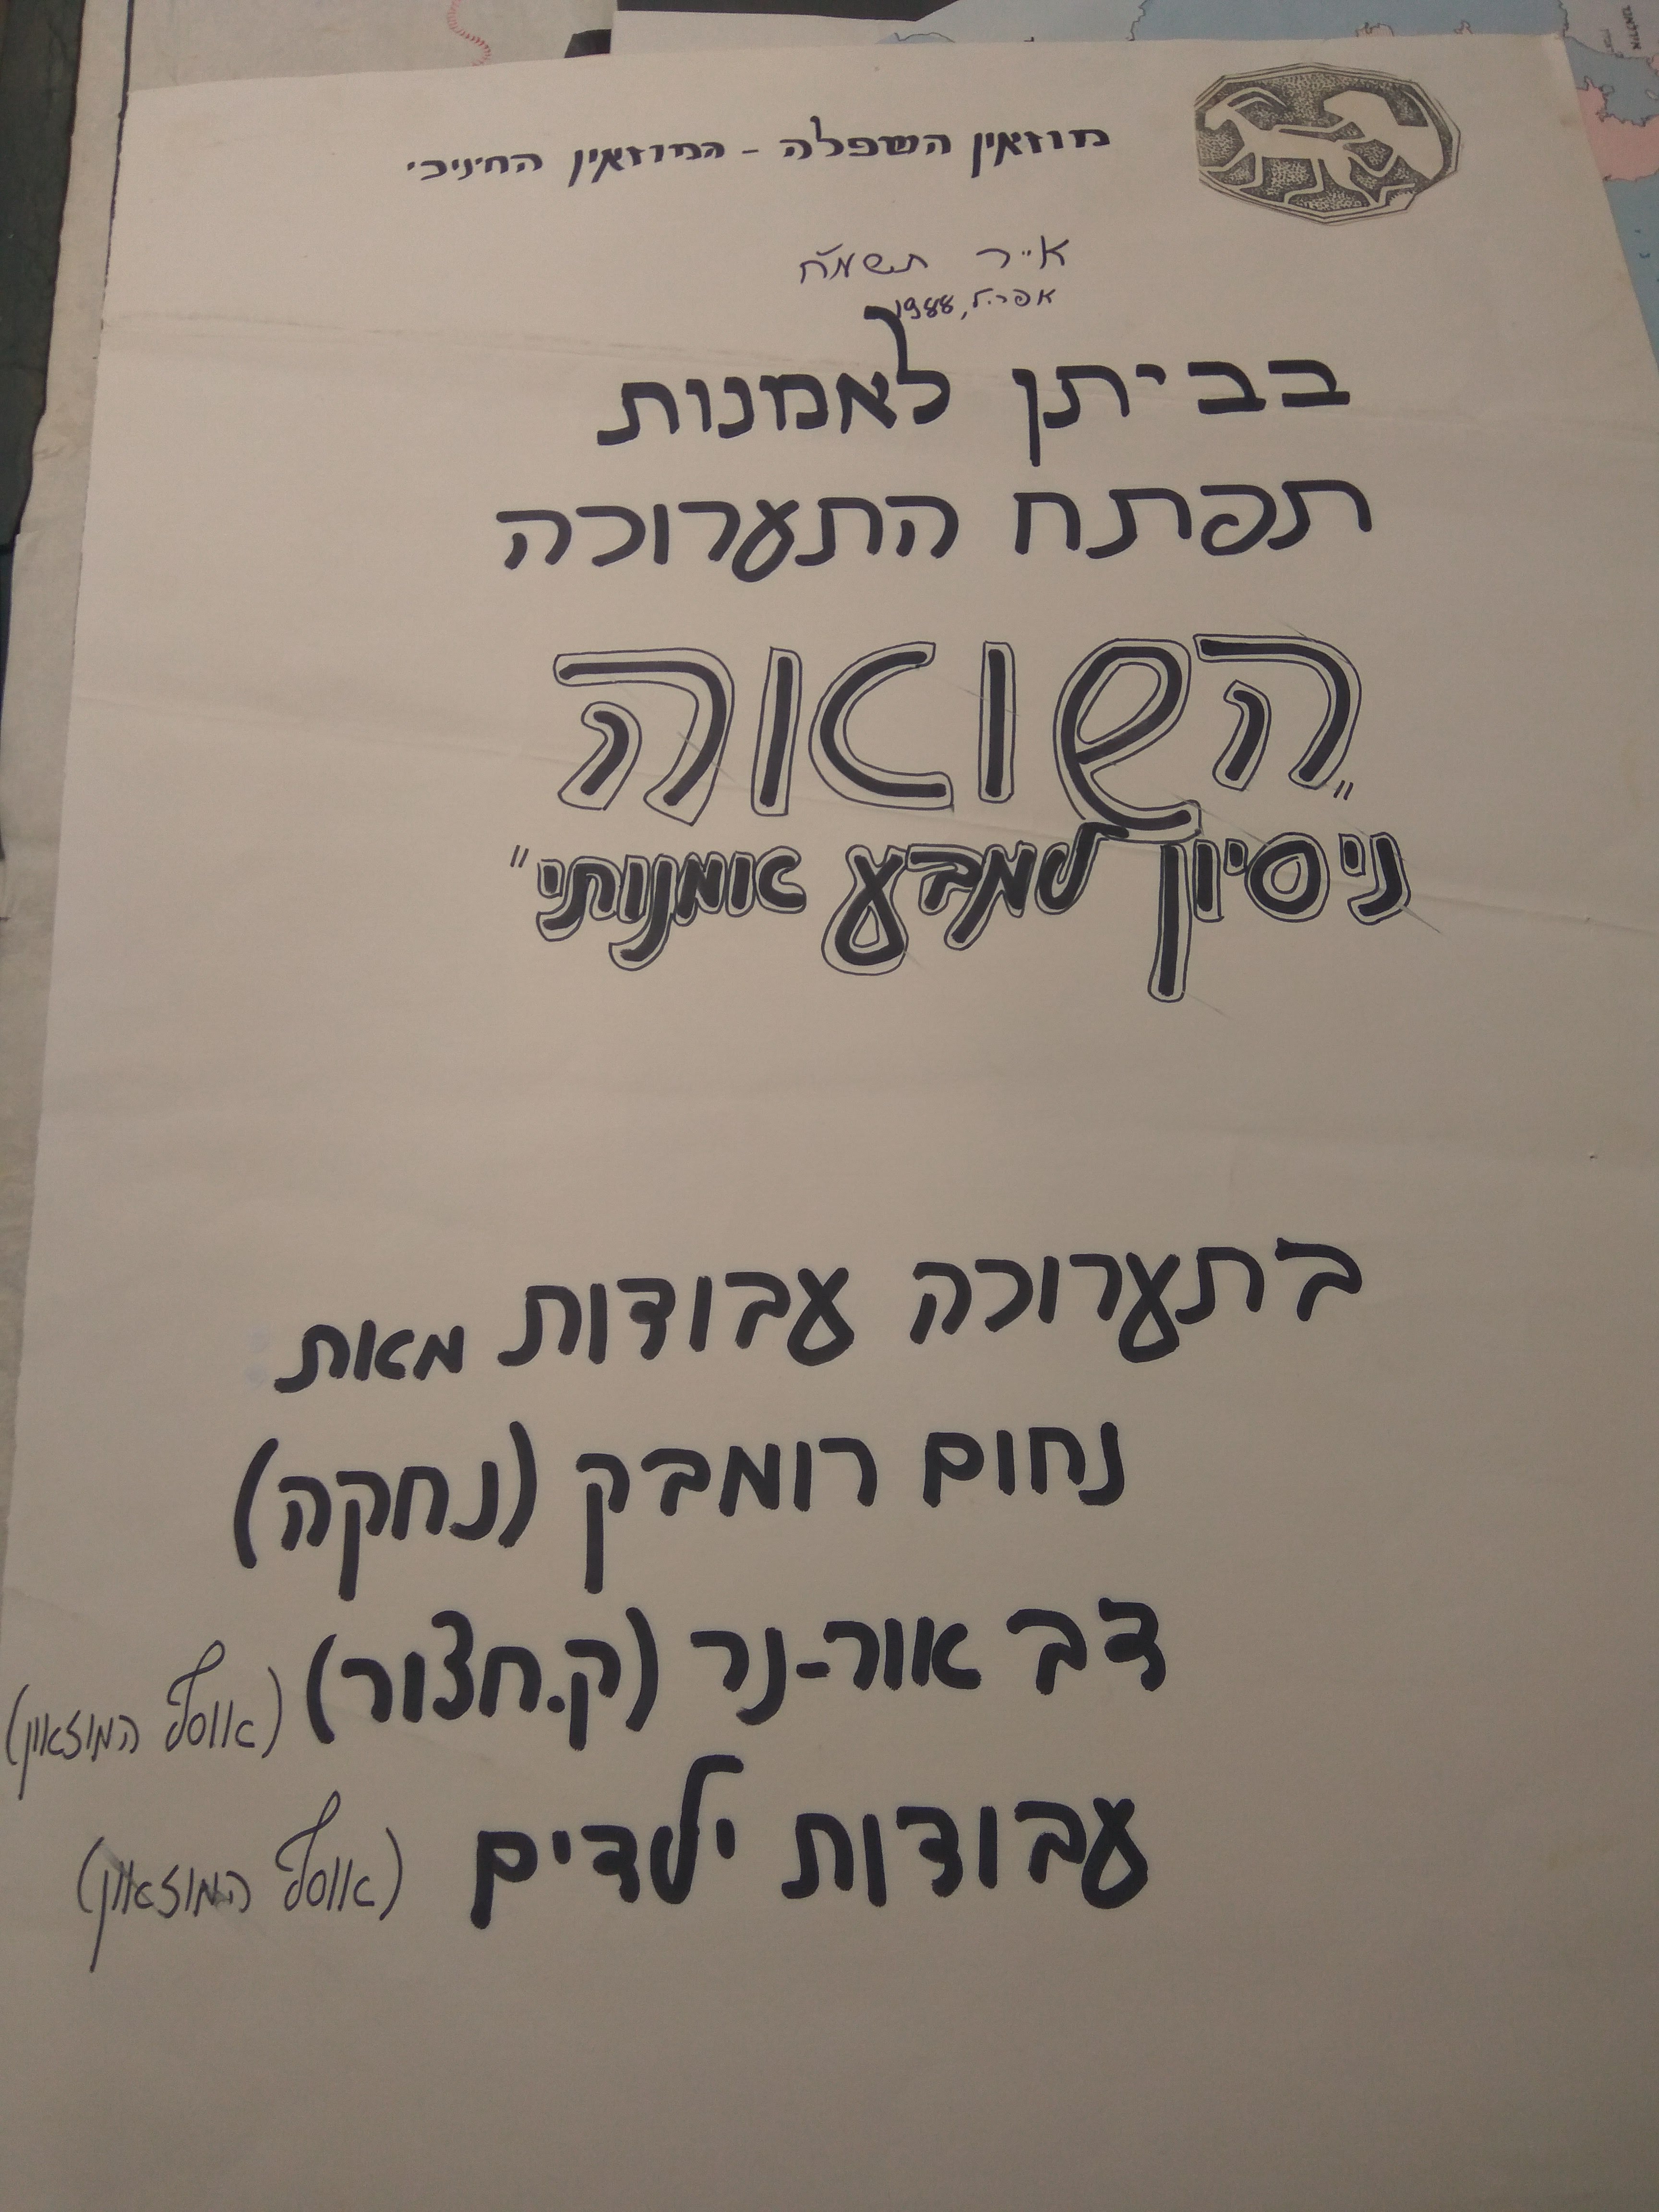 מוזאין השפלה - המוזאין החינוכי
אייר תשמ״ח
אפריל, 1988
בביתן לאמנות
תפתח התערוכה
"השואה
ניסיון למבע אומנותי"
בתערוכה עבודות מאת
נחום רומבק (נחקה)
דב אור-נר (ק.חצור) (אוסף המוזאון)
עבודות ילדים (אוסף המוזאון)